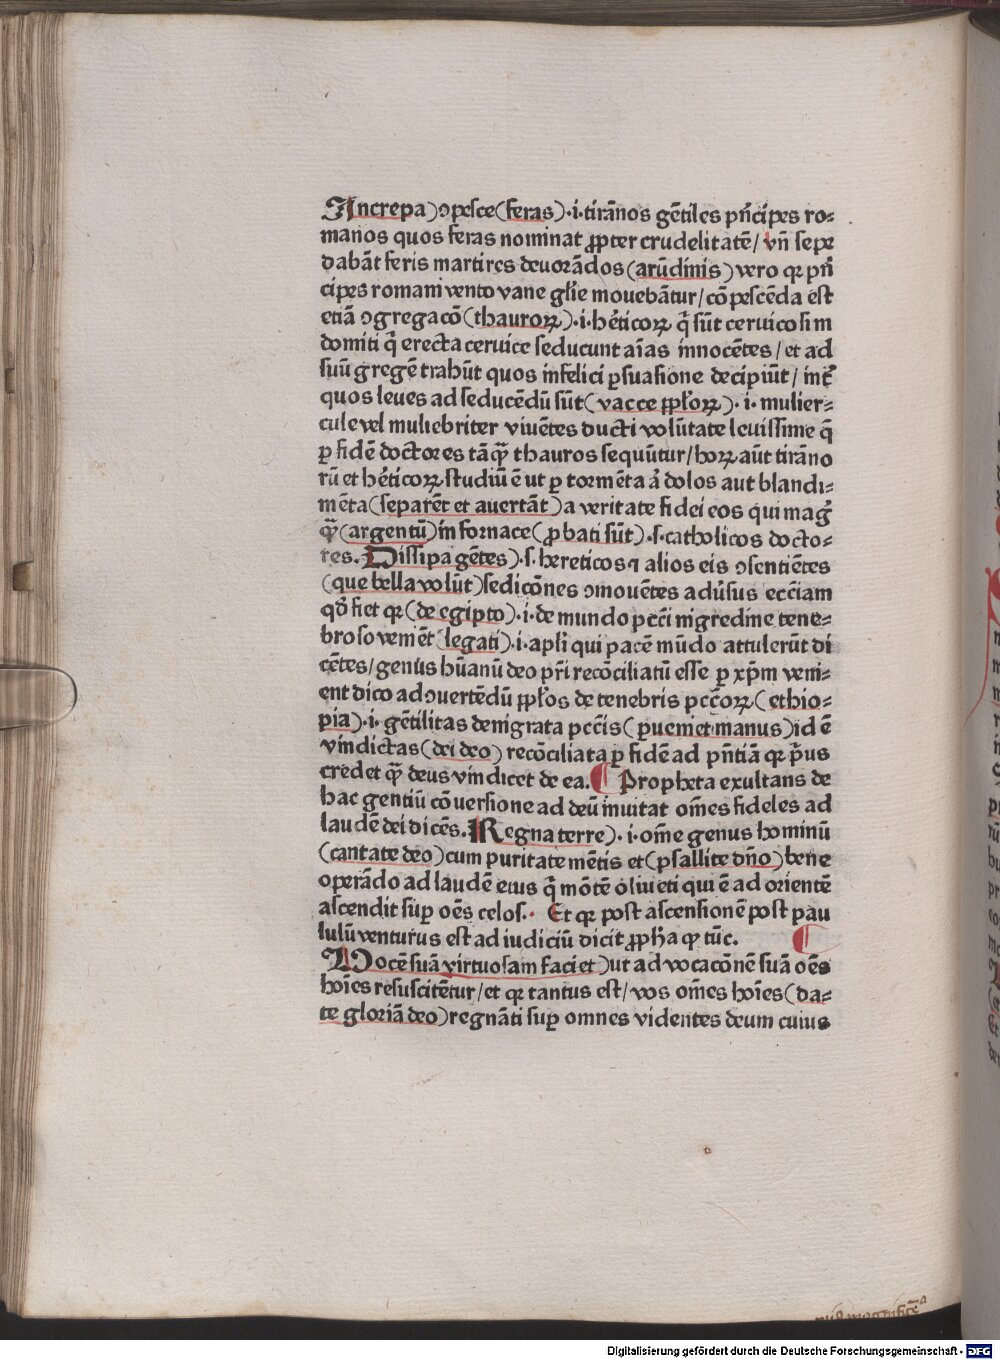 Increpa)ↄpesce(feras)·i·tirānos gētiles pñcipes ro⸗
manos quos feras nominat ꝓpter crudelitatē/ vñ sepe
dabāt feris martires deuorādos(arūdinis)vero qꝛ pñ
cipes romani vento vane glīe mouebātur/cōpescēda est
etiā ↄgregacō(thauroꝝ)·i·hēticoꝝ q̄ sūt ceruicosi m
domiti q̄ erecta ceruice seducunt aīas innocētes/et ad
suū gregē trahūt quos infelici ꝑsuasione decipiūt/ int̄
quos leues ad seducēdū sūt(vacce ppl̄oꝝ)·i·mulier⸗
cule vel muliebriter viuētes ducti volūtate leuissime q̄
ꝑ fidē doctores tāqꝫ̄ thauros sequūtur/hoꝝ aūt tirāno
rū et hēticoꝝ studiū ē ut ꝑ tormēta ā dolos aut blandi⸗
mēta(separēt et auertāt)a veritate fidei eos qui mag̉
qꝫ̄(argentū)in fornace(ꝓbati sūt)·s·catholicos docto⸗
res. Dissipa gētes)·s·hereticos ⁊ alios eis ↄsentiētes
(que bella volūt)sedicōnes ↄmouētes adūsus ecc̄iam
qd̄ fiet qꝛ(de egipto)·i·de mundo pcc̄i nigredine tene⸗
broso veniēt(legati)·i·apl̄i qui pacē mūdo attulerūt di
cētes/genus hūanū deo pr̄i recōciliatū esse ꝑ xp̄m veni⸗
ent dico ad ↄuertēdū ppl̄os de tenebris pcc̄oꝝ(ethio⸗
pia)·i·gētilitas denigrata pcc̄is(p̄ueniet manus)id ē
vindictas(dei deo) recōciliata ꝑ fidē ad pñtiā qꝛ p̄us
credet qꝫ̄ deus vindicet de ea. ¶ Propheta exultans de
hac gentiū cōuersione ad deū inuitat om̄es fideles ad
laudē dei dicēs. Regna terre)·i·om̄e genus hominū
(cantate deo)cum puritate mētis et(psallite dño)bene
operādo ad laudē eius q̄ mōtē oliueti qui ē ad orientē
ascendit suꝑ oēs celos. · Et qꝛ post ascensionē post pau
lulū venturus est ad iudiciū dicit ꝓph̄a qꝫ tūc. ¶
Vocē suā virtuosam faciet)ut ad vocacōnē suā oēs
hoīes resuscitētur/et qꝛ tantus est/vos om̄es hoīes(da⸗
te gloriā deo)regnāti suꝑ omnes videntes deum cuius
Digitalisierung gefördert durch die Deutsche Forschungsgemeinschaft - DFG